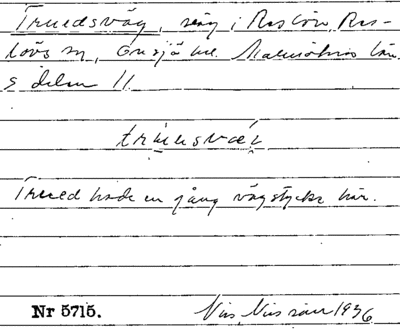 Truedsväg, väg i Reslöv, Res-
lövs sn, Onsjö hd. Malmöhus län
s delen 11.
Trued hade en gång vägstycke här.
Nr 5715.
Nils Nilsson 1936